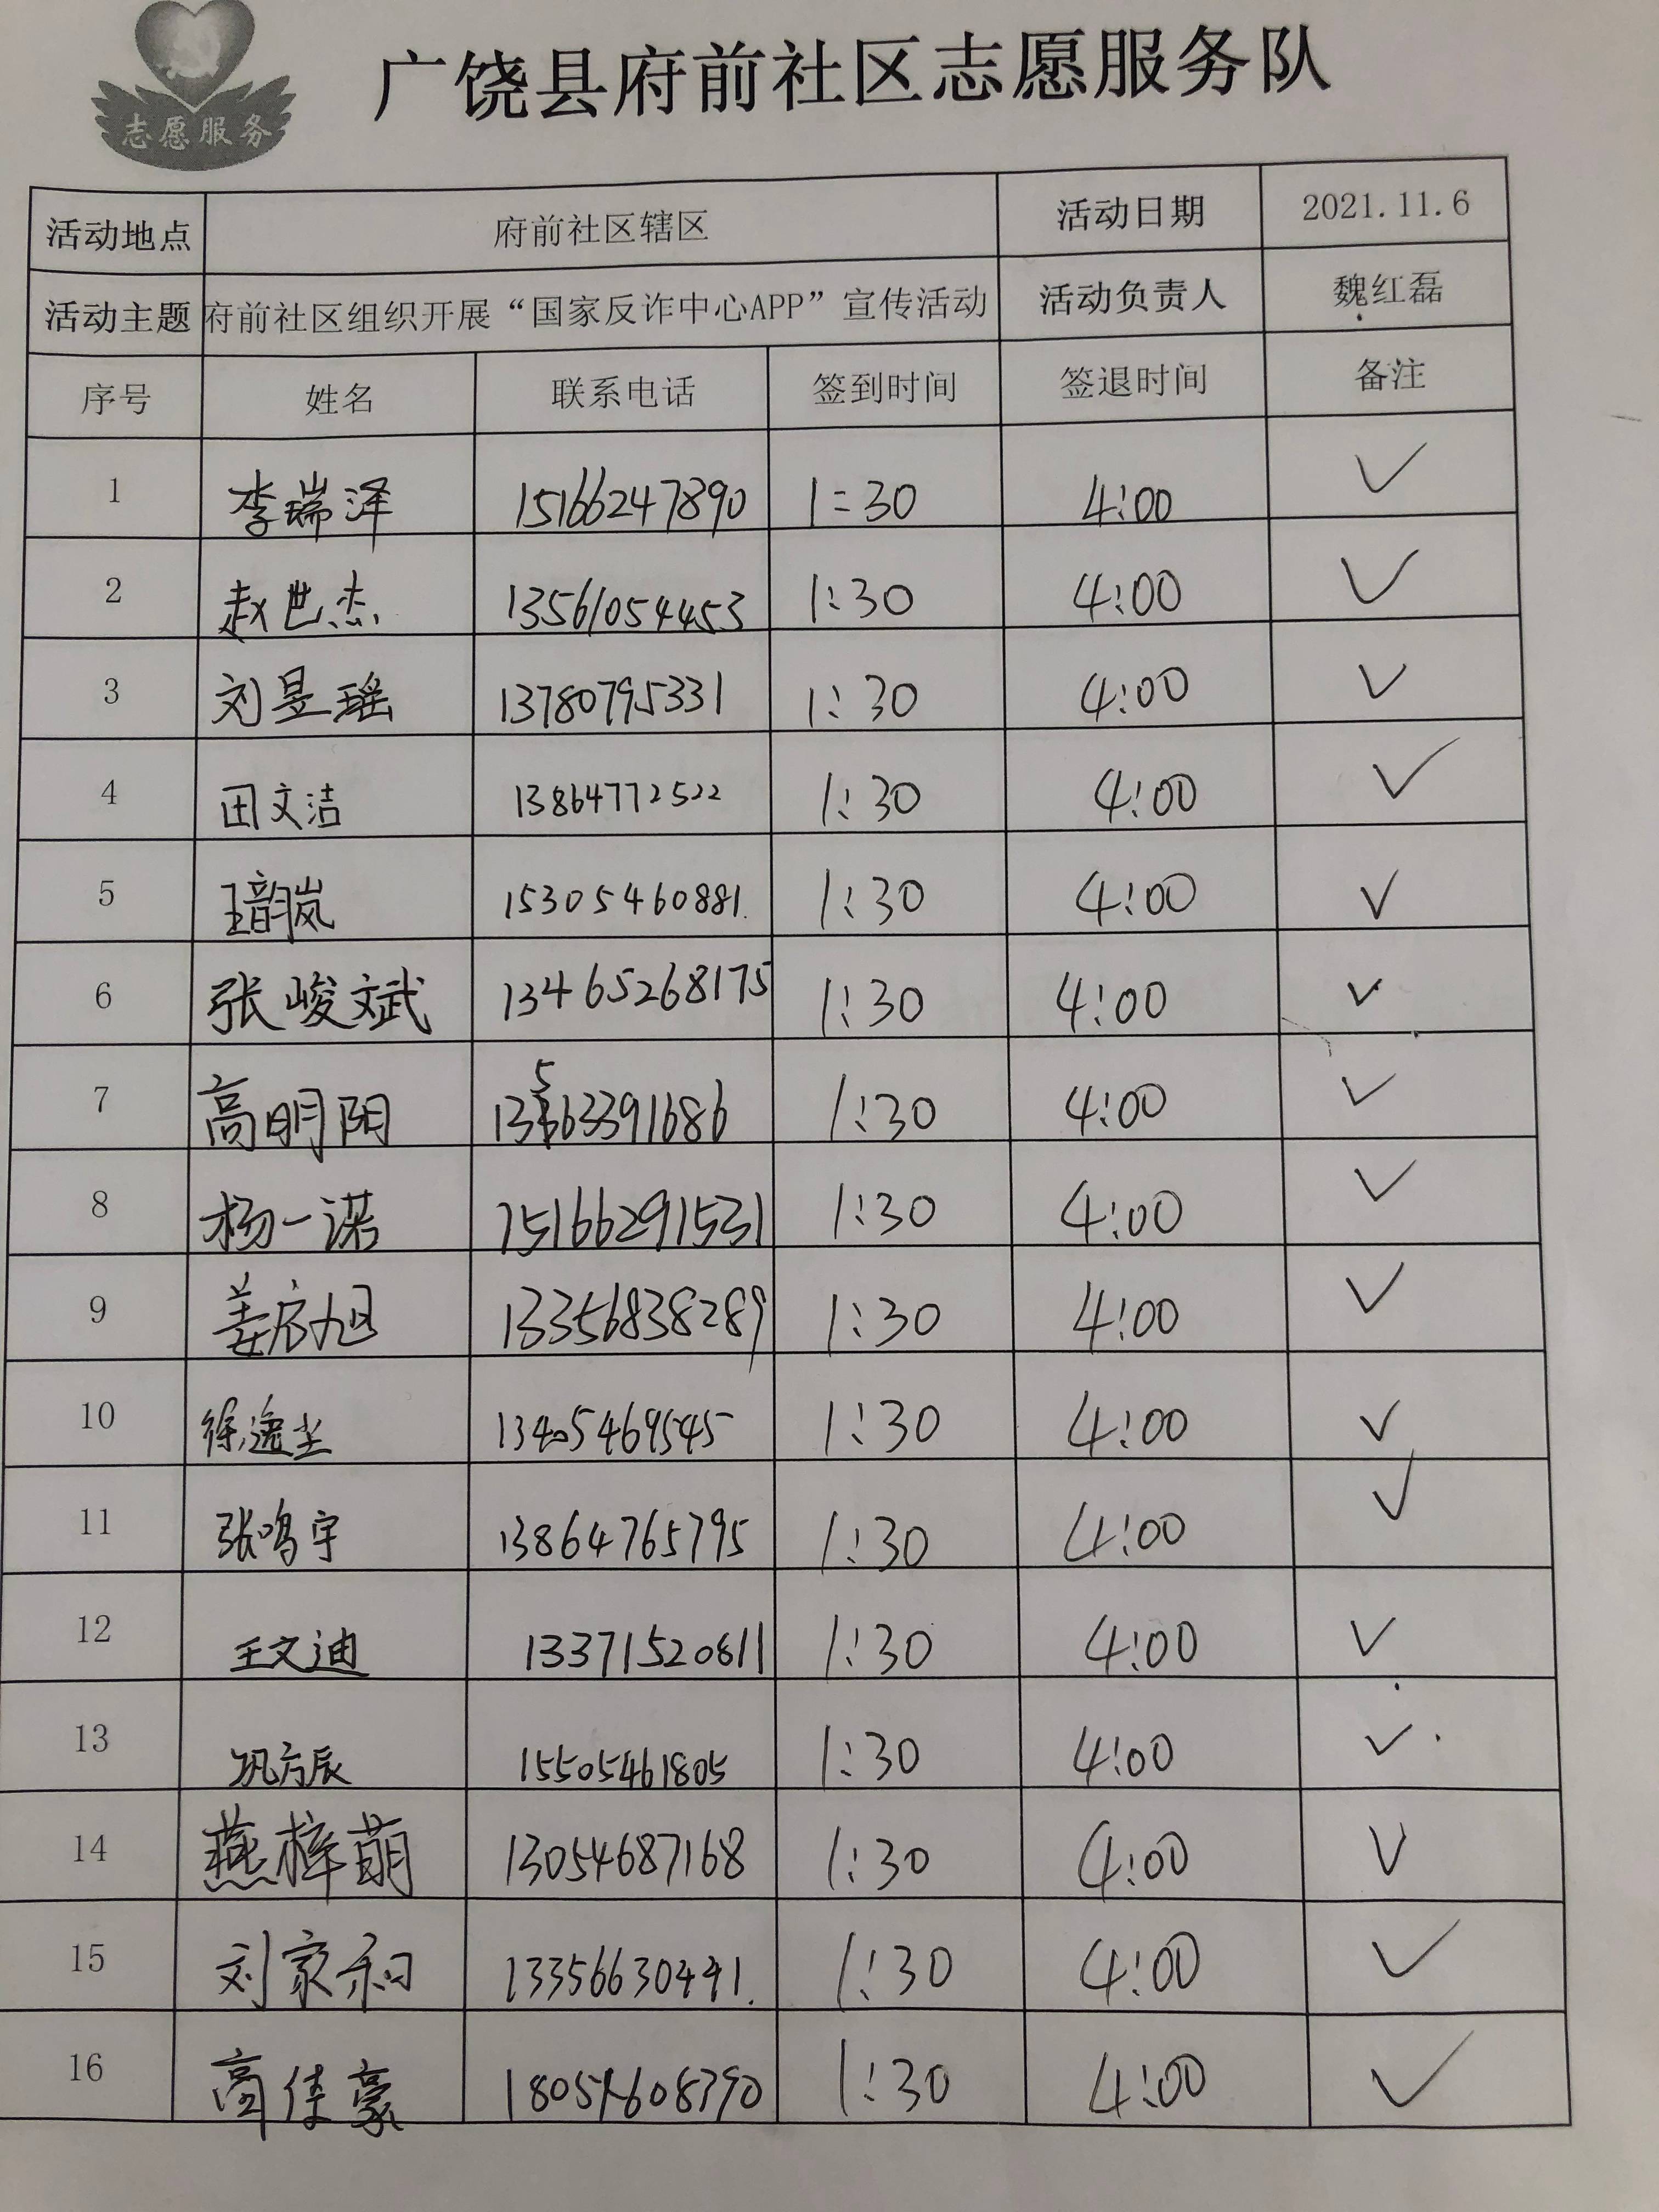 志愿服务
广饶县府前社区志愿服务队
活动地点 府前社区辖区 活动日期 2021.11.6
活动主题 府前社区组织开展“国家反诈中心APP”宣传活动 活动负责人 魏红磊
序号 姓名 联系电话 签到时间 签退时间 备注
1 李瑞泽 15166247890 1:30 4:00 ✓
2 赵世杰 13561054453 1:30 4:00 ✓
3 刘昱瑶 13780795331 1:30 4:00 ✓
4 田文洁 13864772522 1:30 4:00 ✓
5 王韵岚 15305460881. 1:30 4:00 ✓
6 张峻文斌 13465268175 1:30 4:00 ✓
7 高明阳 13563391686 1:30 4:00 ✓
8 杨一诺 15166291531 1:30 4:00 ✓
9 姜启旭 13356838289 1:30 4:00 ✓
10 徐逸尘 13405469545 1:30 4:00 ✓
11 张鸣宇 13864765795 1:30 4:00 ✓
12 王文迪 13371520811 1:30 4:00 ✓
13 巩方辰 15505461805 1:30 4:00 ✓
14 燕梓萌 13054687168 1:30 4:00 ✓
15 刘家和 13356630441. 1:30 4:00 ✓
16 高佳豪 18054608390 1:30 4:00 ✓